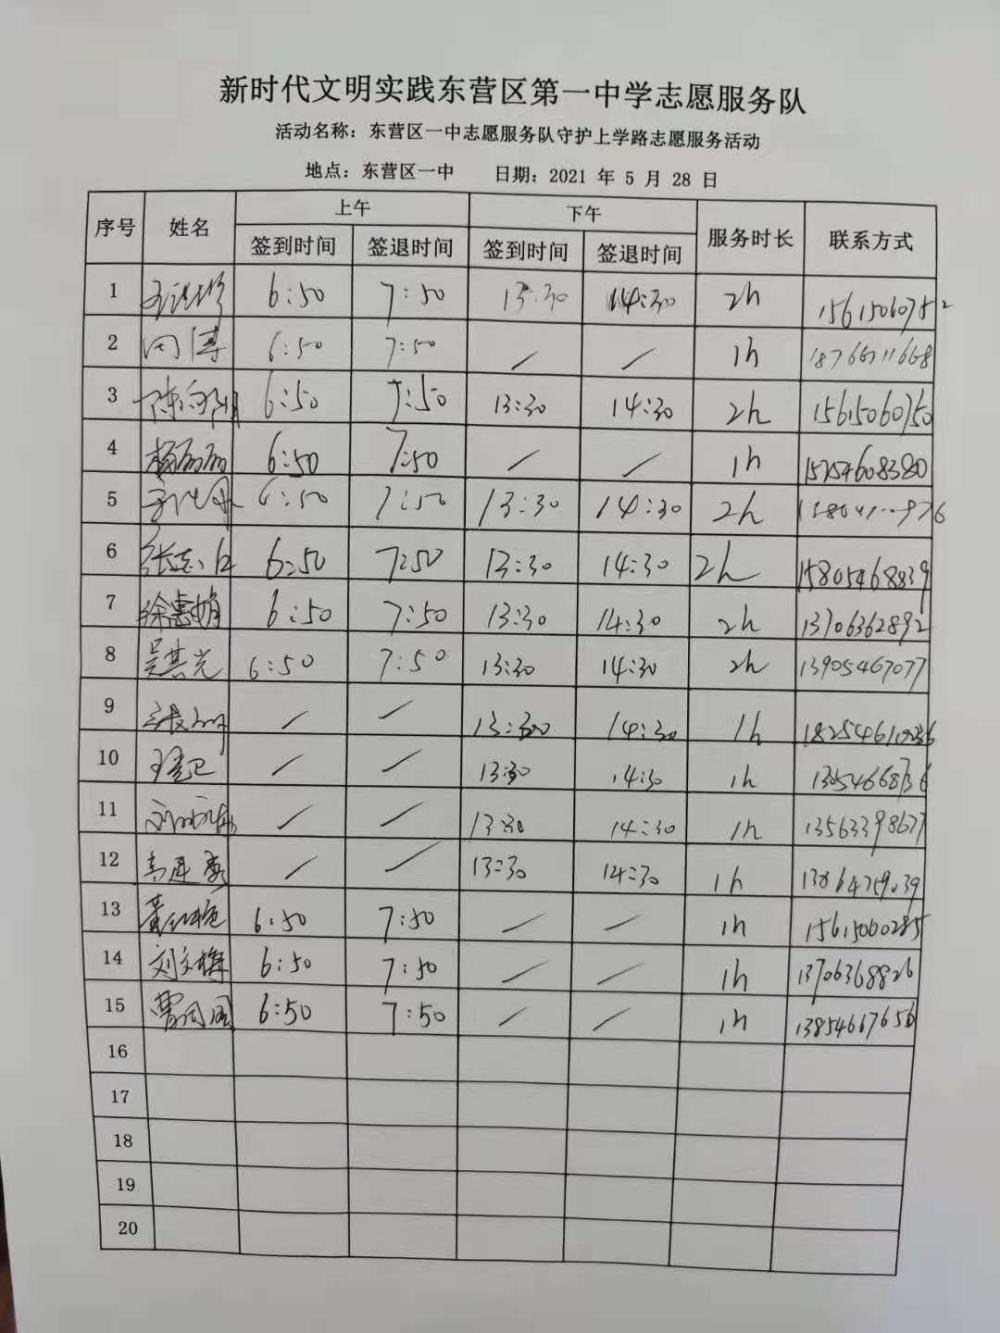 新时代文明实践东营区第一中学志愿服务队
活动名称：东营区一中志愿服务队守护上学路志愿服务活动
地点：东营区一中 日期：2021 年 5 月 28 日
序号 姓名 上午 下午 服务时长 联系方式
签到时间 签退时间 签到时间 签退时间
1 6:50 7:50 13:30 14:30 2h
2 闫博 6:50 7:50 / / 1h
3 6:50 7:50 13:30 14:30 2h 15615060750
4 杨丽丽 6:50 7:50 / / 1h 15254608380
5 6:50 7:50 13:30 14:30 2h
6 6:50 7:50 13:30 14:30 2h 15805468839
7 徐惠娟 6:50 7:50 13:30 14:30 2h 13706362892
8 吴其光 6:50 7:50 13:30 14:30 2h 13905467077
9 / / 13:30 14:30 1h
10 / / 13:30 14:30 1h 13054668736
11 / / 13:30 14:30 1h 13563398677
12 / / 13:30 14:30 1h
13 6:50 7:50 / / 1h 15615060285
14 刘文梅 6:50 7:50 / / 1h 13706368826
15 6:50 7:50 / / 1h 13854667656
16
17
18
19
20